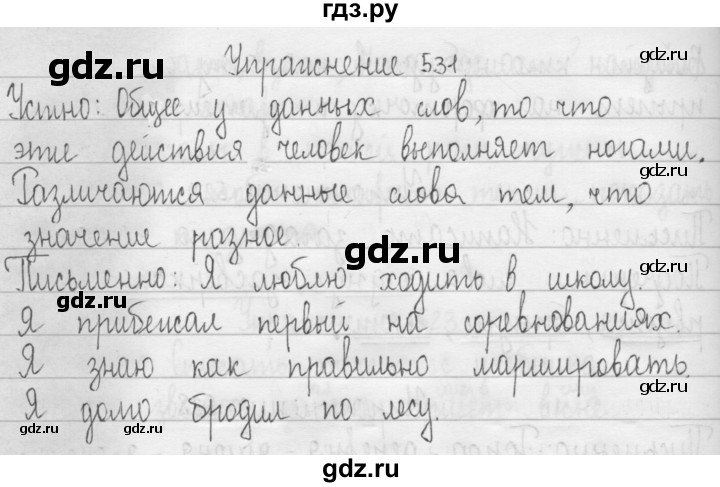 гдз.ру
gdz.ru
Упражнение 531
gdz.ru
Устно: Общее у данных слов, то что
эти действия человек выполняет ногами.
gdz.ru
Различаются данные слова тем, что
значение разное.
gdz.ru
Письменно: Я люблю ходить в школу.
gdz.ru
Я прибежал первый на соревнованиях.
Я знаю как правильно маршировать.
gdz.ru
gdz.ru
Я долго бродил по лесу.
gdz.ru
gdz.ru
gdz.ru